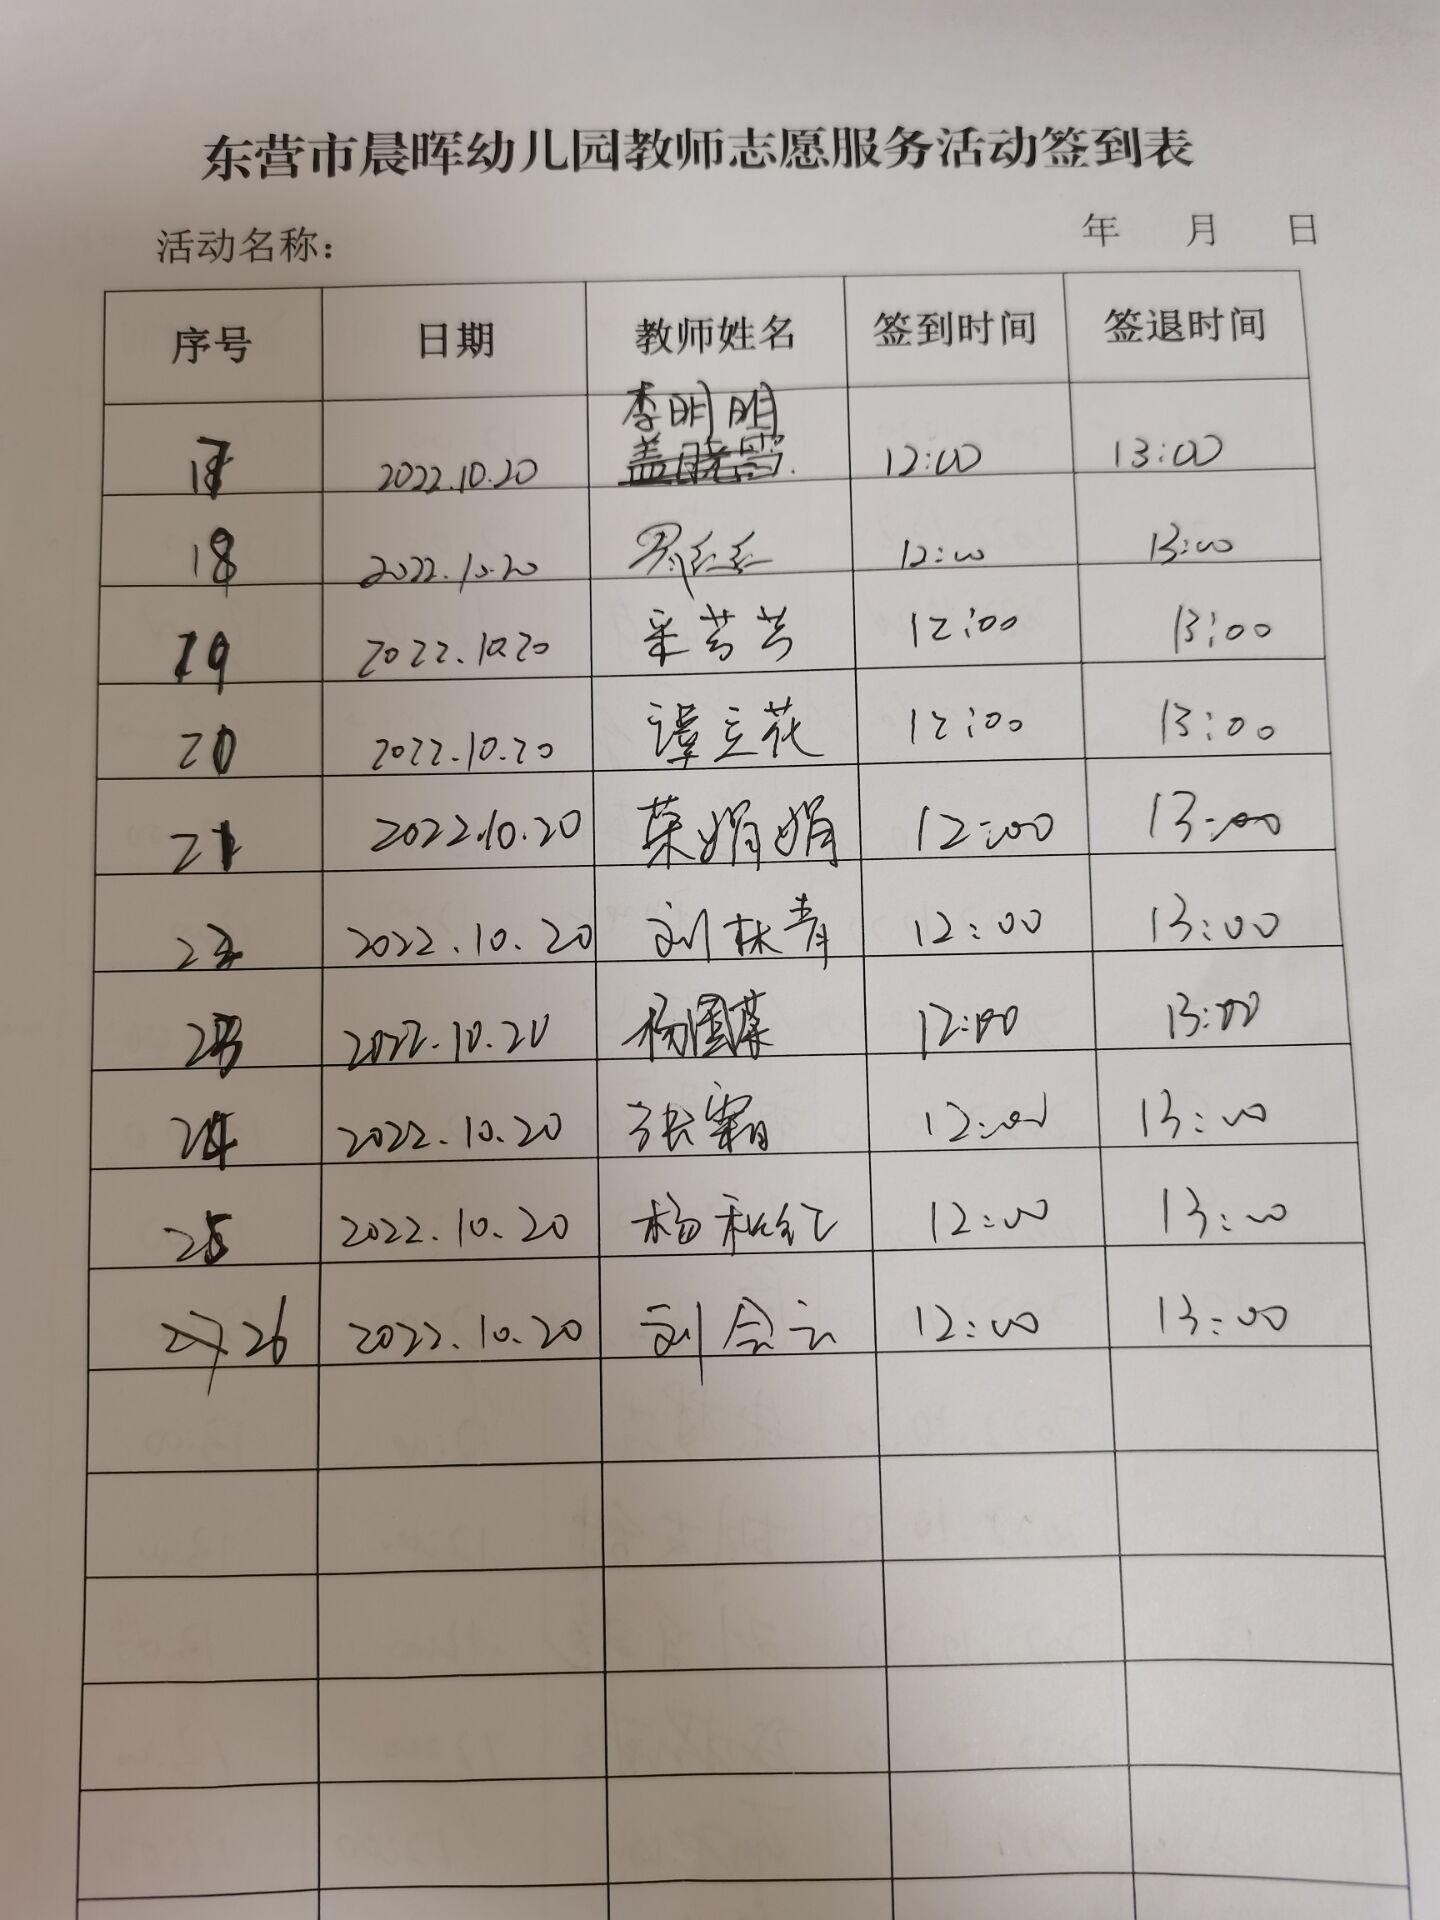 东营市晨晖幼儿园教师志愿服务活动签到表
活动名称： 年 月 日
序号 日期 教师姓名 签到时间 签退时间
李明明
17 2022.10.20 盖晓雪. 12:00 13:00
18 2022.10.20 红红 12:00 13:00
19 2022.10.20 采芳芳 12:00 13:00
20 2022.10.20 谭立花 12:00 13:00
21 2022.10.20 荣娟娟 12:00 13:00
22 2022.10.20 刘林青 12:00 13:00
23 2022.10.20 杨国 12:00 13:00
24 2022.10.20 张霜 12:00 13:00
25 2022.10.20 杨红 12:00 13:00
27 26 2022.10.20 刘会云 12:00 13:00